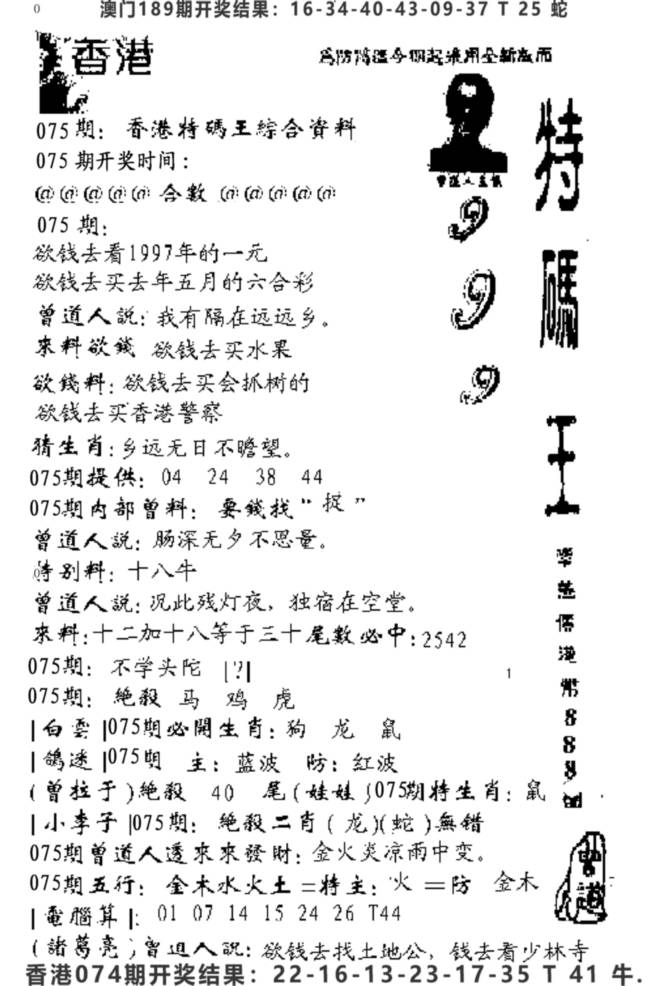 0
澳门189期开奖结果：16-34-40-43-09-37 T 25 蛇
香港
075期：香港特碼王綜合資料
075 期开奖时间：
@@@@@ 合數 @@@@@
075 期：
欲钱去看1997年的一元
欲钱去买去年五月的六合彩
曾道人説：我有隔在远远乡。
來料欲錢 欲钱去买水果
欲錢料：欲钱去买会抓树的
欲钱去买香港警察
猜生肖：乡远无日不瞻望。
075期提供：04 24 38 44
075期内部曾料：要錢找“捉”
曾道人説：肠深无夕不思量。
特别料：十八牛
曾道人説：况此残灯夜，独宿在空堂。
來料：十二加十八等于三十尾數必中：2542
075期：不学头陀 |?|
075期：絶殺 马 鸡 虎
|白雲|075期必開生肖：狗 龙 鼠
|鴿迷|075期 主：蓝波 防：紅波
(曾拉于)絶殺 40 尾(娃娃)075期特生肖：鼠
|小李子|075期：絶殺二肖(龙)(蛇)無错
075期曾道人透來來發財：金火炎凉雨中变。
075期五行：金木水火土=特主：火=防 金木
|電腦算|：01 07 14 15 24 26 T44
(諸葛亮)曾道人説：欲钱去找土地公，钱去看少林寺
香港074期开奖结果：22-16-13-23-17-35 T 41 牛.
特碼王
999
港幣888
1